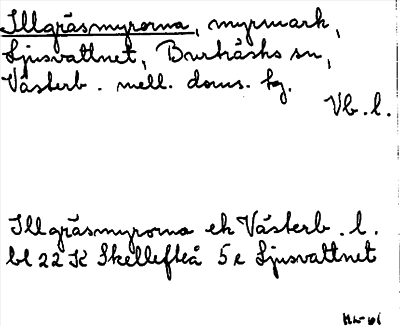 Illgräsmyrorna, myrmark,
Ljusvattnet, Burträsks sn,
Västerb. mell. doms. hg.
Vb. l.
Illgräsmyrorna ek Västerb. l.
bl 22 K Skellefteå 5 e Ljusvattnet